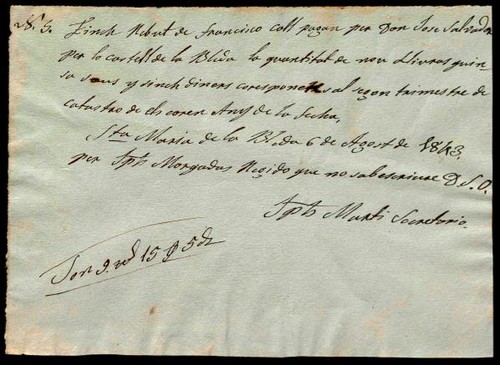 Tinch Rebut de Francisco Coll pagan per Don Jose Salvador
per lo castell de la Blda la quantitat de nou Lliuras quin
sa sous y sinch diners corresponents al segon trimestre de
catastro de ch corren Any de la fecha,
Sta Maria de la Blda 6 de Agost de 1843.
per Jph Morgadas Regido que no sab escriurer D. S. O.
Jph Marti Secretario.
Son 9 15 5